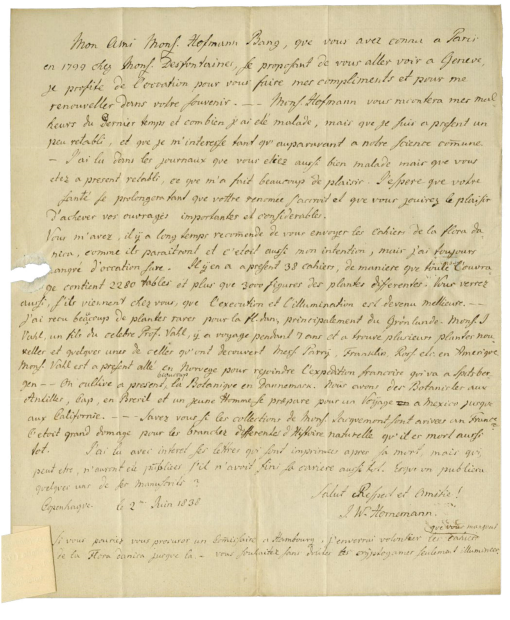 Mon Ami Mons. Hofmann Bang, que vous avez conau a Paris
en 1799 chez Mons. Desfontaines, se proposant de vous aller voir a Geneve,
je profite de l'occation pour vous faire mes compliments et pour me
renouveller dans votre souvenir. — — Mons. Hofmann vous montera mes mal-
heurs du Dernier temps et combien j'ai eté malade, mais que je suis a present un
peu retabli, et que je m'interesse tant qu'auparavant a notre science comune.
— J'ai lu dans les journaux que vous etiez aussi bien malade mais que vous
etez a present retabli, ce que m'a fait beaucoup de plaisir. J'espere que votre
santé se prolongera tant que vottre renomee s'acroit et que vous jouirez le plaisir
d'achever vos ouvrages importantes et considerables.
Vous m'avez, il ÿ a long temps recomendé de vous envoyer les Cahiers de la flora da
nica, comme ils paraitront et c'etoit aussi mon intention, mais j'ai toujours
manqué d'occation sure. Il ÿ en a a present 38 cahiers, de maniere que toute l'ouvra
ge contient 2280 tables et plus que 3000 figures des plantes differentes. Vous verrez
aussi, s'ils viennent chez vous, que l'execution et l'illumination est devenu meilleure. — —
J'ai recu beaucoup de plantes rares pour la fl. dan, principalement du Grönlande. Mons. J
Vahl, un fils du celebre Prof. Vahl, ÿ a voyagé pendant 7 ans et a trouvé plusieurs plantes nou-
velles et quelques unes de celles qu'ont decouvert Mess. Parry, Franklin, Ross etc. en Amerique
Mons. Vahl est a present allé en Norvege pour rejoindre l'expedition francoise qui va a Spitsber
gen — — On cultive a present beaucoup la Botanique en Dannemarc. Nous avons des Botanistes aux
Antilles, Cap, en Bresil et un jeune Homme se prepare pour un Voyage a Mexico jusque
aux Californie. — — — Savez vous si les collections de Mons. Jacquemont sont arrivés en France?
C'etoit grand domage pour les branches differente d'Histoire naturelle qu'il est mort aussi
tot. J'ai lu avec interet ses lettres qui sont imprimées apres sa mort, mais qui,
peut etre, n'auront eté publiées s'il n'avoit fini sa cariere aussi tot. Enque on publiera
quelques uns de ses manuscrits?
Copenhague. le 2 Juin 1838 Salut, Respect et Amitié!
J. W. Hornemann.
que vous manquent
Si vous pouriez vous procurer un comissaire a Hambourg, j'enverrai volontier les Fascic
de la Flora Danica jusque la — vous souhaitez sans doutes les cryptogames seulement illuminées